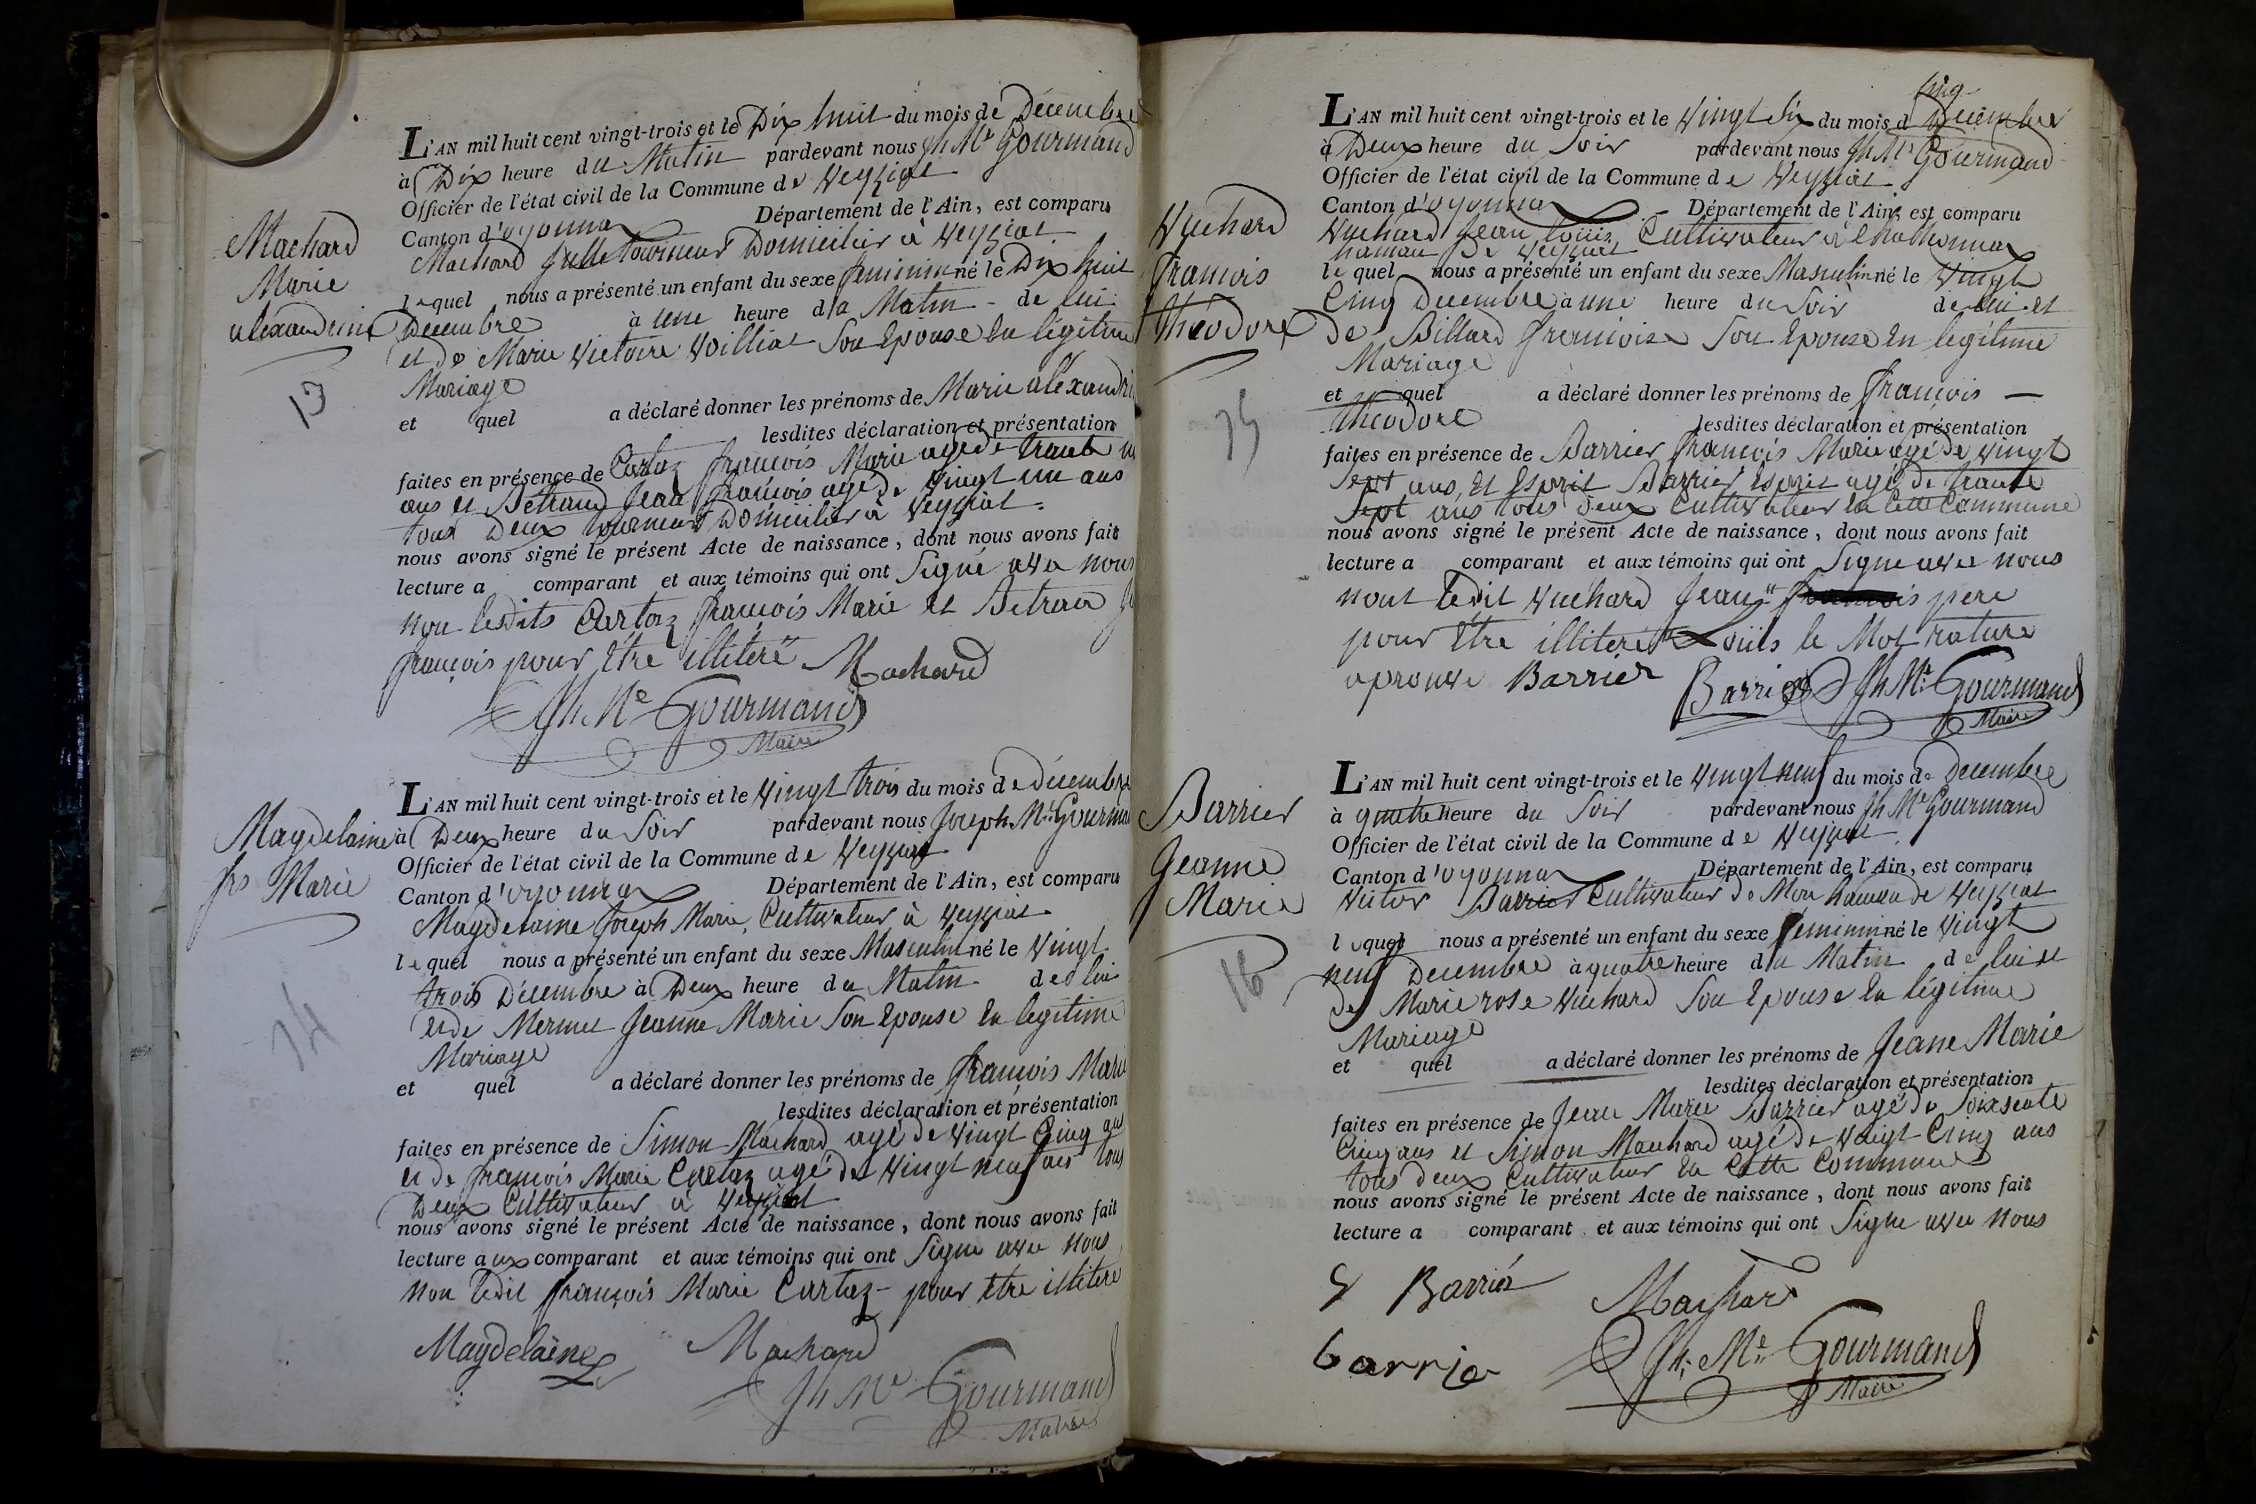 Machard
Marie
alexandrine
13
L'AN mil huit cent vingt-trois et le Dix huit du mois de Décembre
à Dix heure du Matin pardevant nous Jh Me Gourmand
Officier de l'état civil de la Commune de Veyziat
Canton d'oyonnax Département de l'Ain, est comparu
Machard Tourneur Domicilier à Veyziat
lequel nous a présenté un enfant du sexe feminin né le Dix huit
Decembre à une heure du Matin de lui
et de Marie Victoire Voilliat Son Epouse En légitime
Mariage
et quel a déclaré donner les prénoms de Marie alexandri
lesdites déclaration et présentation
faites en présence de Cartaz françois Marie agé de trante
ans et Betrand Jean françois agé de Vingt un ans
tous Deux tourneur Domicilier a Veyziat
nous avons signé le présent Acte de naissance, dont nous avons fait
lecture a comparant et aux témoins qui ont Signé avec nous
non lesdits Cartaz françois Marie et Betran
françois pour Etre illiteré Machard
Jh Me Gourmand
Maire
Magdelaine
frs Marie
14
L'AN mil huit cent vingt-trois et le Vingt trois du mois de décembre
à Deux heure du Soir pardevant nous Joseph Me Gourma
Officier de l'état civil de la Commune de Veyziat
Canton d'oyonnax Département de l'Ain, est comparu
Magdelaine Joseph Marie, Cultivateur à Veyziat
lequel nous a présenté un enfant du sexe Masculin né le Vingt
trois Décembre à Deux heure du Matin de lui
et de Mermet Jeanne Marie Son Epouse En legitime
Mariage
et quel a déclaré donner les prénoms de françois Marie
lesdites déclaration et présentation
faites en présence de Simon Machard agé de Vingt Cinq an
et de françois Marie Cartaz agé de Vingt neuf ans tous
Deux Cultivateur à Veyziat
nous avons signé le présent Acte de naissance, dont nous avons fait
lecture aux comparant et aux témoins qui ont Signe avec Nous
Non ledit françois Marie Cartaz - pour Etre illitere
Magdelaine Machard
Jh Me Gourmand
Maire
Vuchard
françois
théodore
15
Cinq
L'AN mil huit cent vingt-trois et le Vingt Six du mois d Décembre
à Deux heure du Soir pardevant nous Jh Me Gourmand
Officier de l'état civil de la Commune de Veyziat
Canton d'oyonnax Département de l'Ain, est comparu
Vuchard Jean louis Cultivateur à Chatonnax
hamau de Veyziat
lequel nous a présenté un enfant du sexe Masculin né le Vingt
Cinq Decembre à une heure du Soir de lui et
de Billard françoise Son Epouse En legitime
Mariage
et quel a déclaré donner les prénoms de françois —
théodore
lesdites déclaration et présentation
faites en présence de Barrier françois Marie agé de Vingt
Sept ans, Et Esprit Barrier Esprit agé de trante
Sept ans tous deux Cultivateur En Cette Commune
nous avons signé le présent Acte de naissance, dont nous avons fait
lecture a comparant et aux témoins qui ont Signe avec nous
nont ledit Vuchard Jean françois pere
pour Etre illiteré Louis le Mot rature
aprouve Barrier Barrier Jh Me Gourmand
Maire
Barrier
Jeanne
Marie
16
L'AN mil huit cent vingt-trois et le Vingt neuf du mois de Decembre
à quatre heure du Soir pardevant nous Jh Me Gourmand
Officier de l'état civil de la Commune de Veyziat
Canton d'oyonnax Département de l'Ain, est comparu
Victor Barrier Cultivateur de Mon hameau de Veyziat
lequel nous a présenté un enfant du sexe feminin né le Vingt
neuf Decembre à quatre heure du Matin de lui et
de Marie rose Vuchard Son Epouse En légitime
Mariage
et quel a déclaré donner les prénoms de Jeane Marie
lesdites déclaration et présentation
faites en présence de Jean Marie Barrier agé de Soixsente
Cinq ans et Simon Machard agé de Vaigt Cinq ans
tous deux Cultivateur En Cette Commune
nous avons signé le présent Acte de naissance, dont nous avons fait
lecture a comparant et aux témoins qui ont Signe avec Nous
Barrier Machard
barrie Jh Me Gourmand
Maire